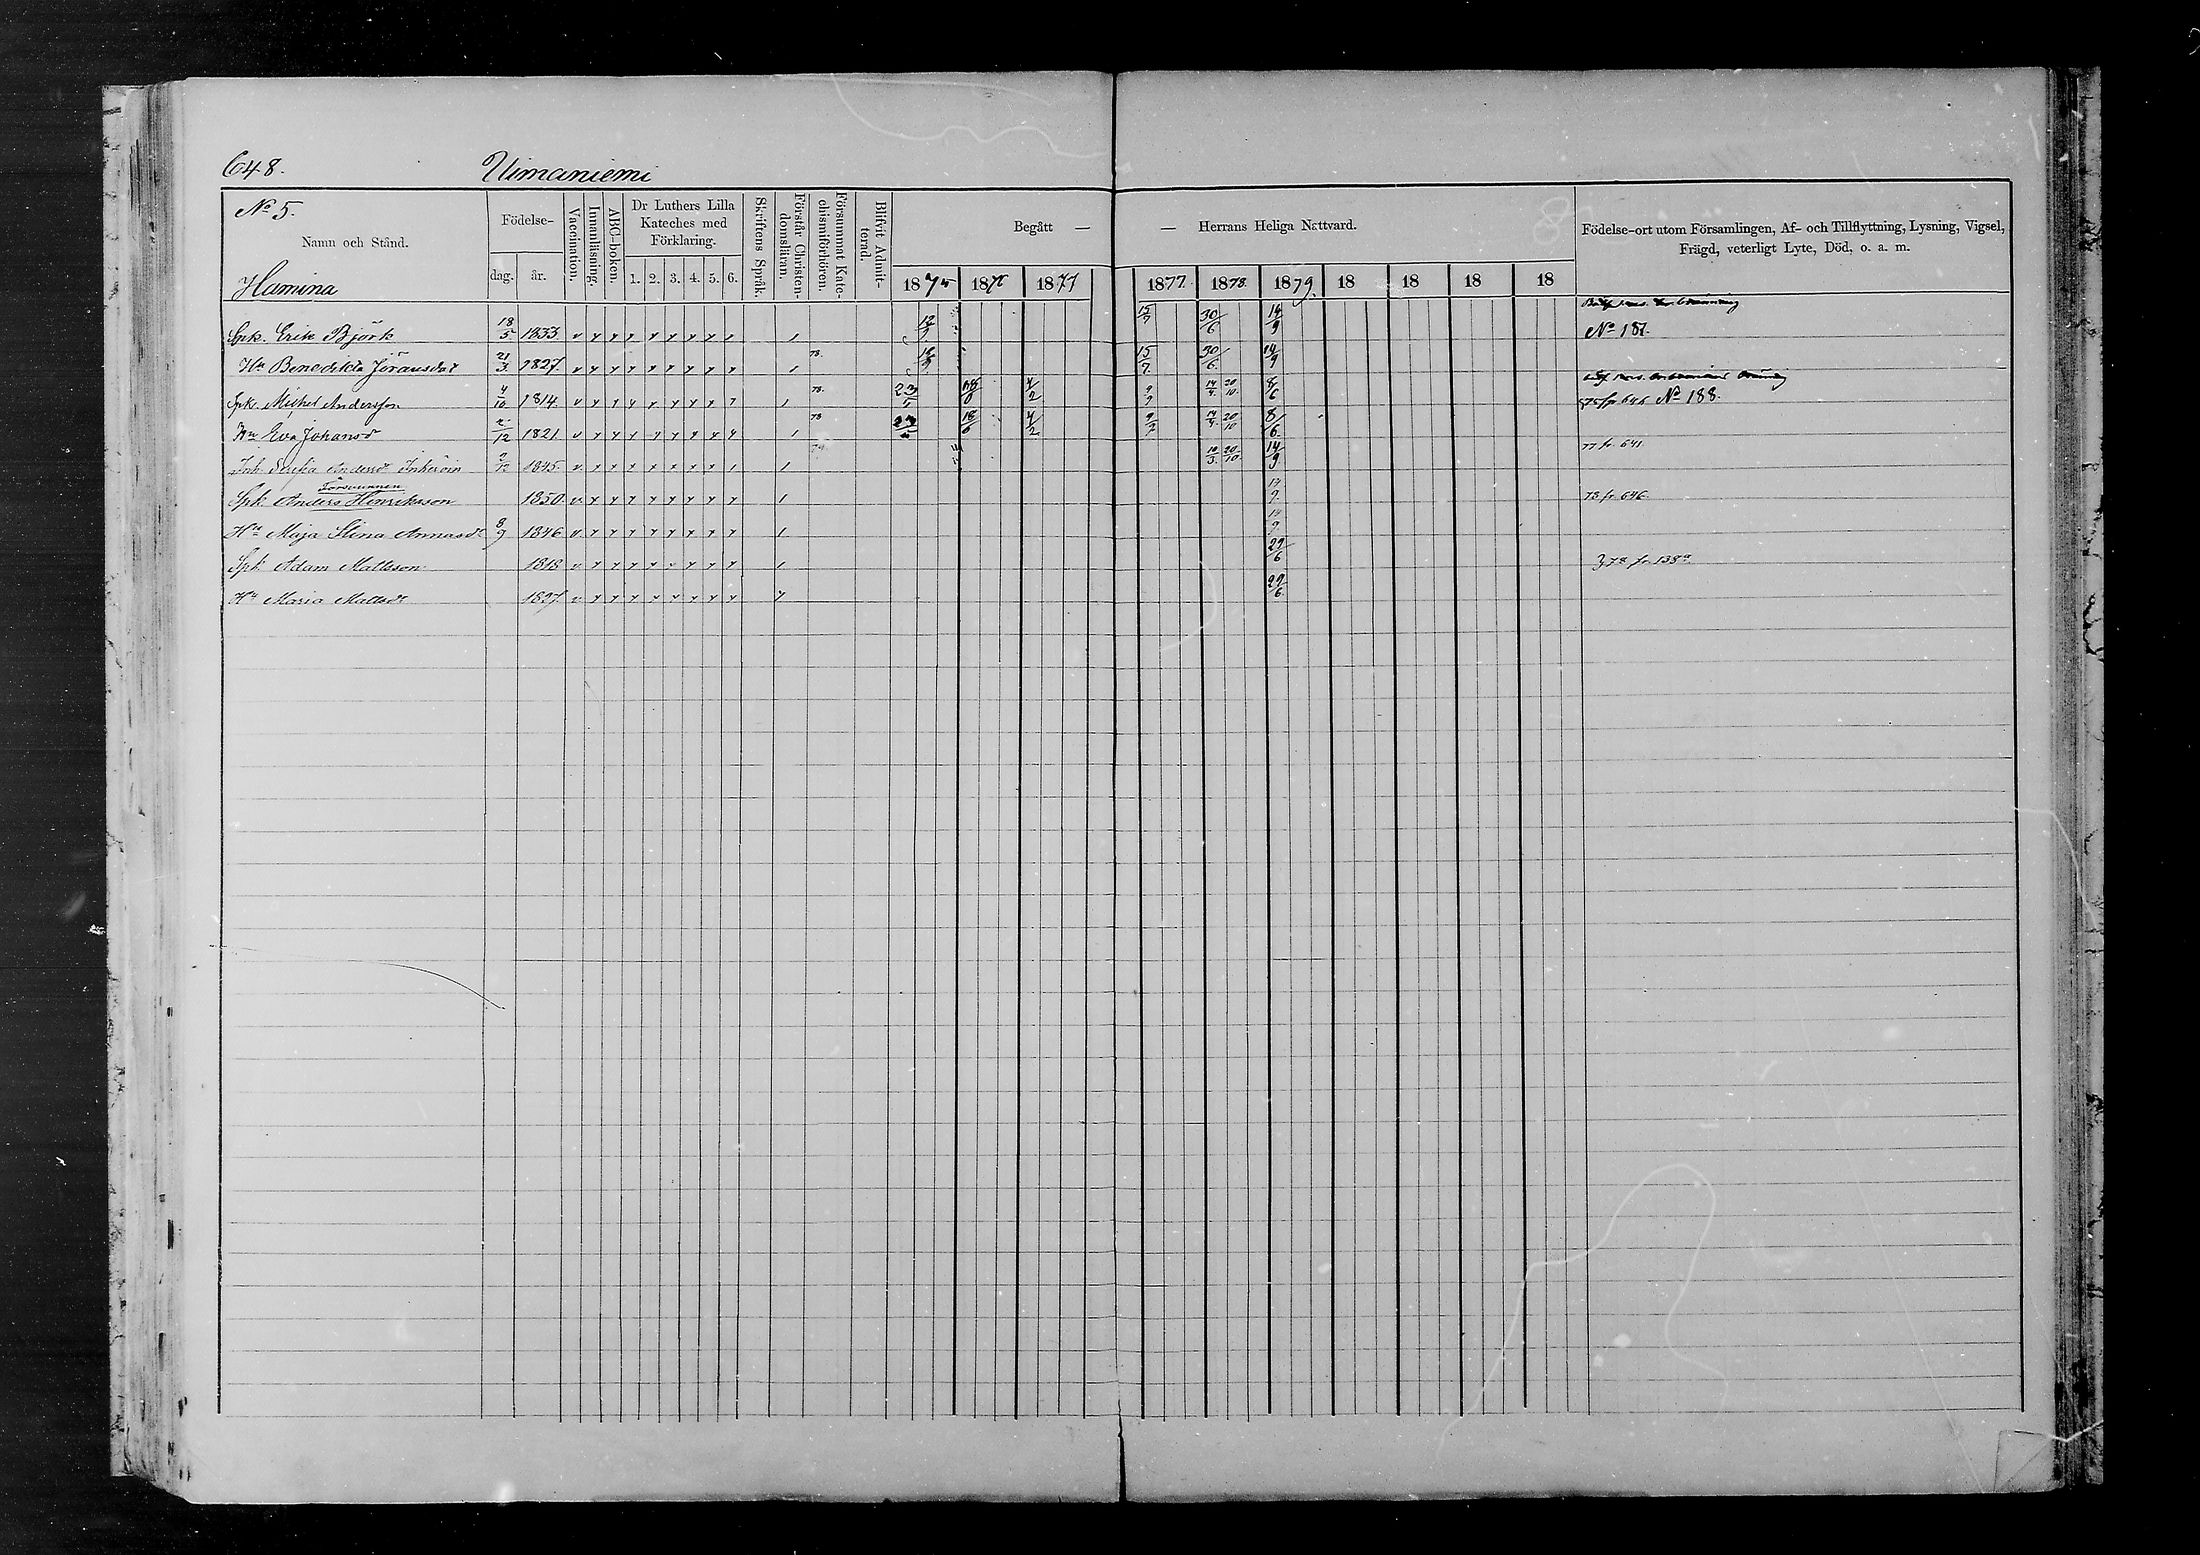 648. Uimaniemi
No 5.
Namn och Stånd.
Hamina
Födelse-
dag. år.
Vaccination.
Innanläsning.
ABC-boken.
Dr Luthers Lilla Kateches med Förklaring.
1. 2. 3. 4. 5. 6.
Skriftens Språk.
Förstår Christendomsläran.
Försummat Katechismiförhören.
Blifvit Admitterad.
Begått — — Herrans Heliga Nattvard.
1875 1876 1877 1877 1878 1879 18 18 18 18
Födelse-ort utom Församlingen, Af- och Tillflyttning, Lysning, Vigsel,
Frägd, veterligt Lyte, Död, o. a. m.
Spk. Erik Björk 18/5 1833 12/7 15/7 30/6 14/9 No 187.
Hu Benedikta Göransdr 21/3 1827 78. 15/7 30/6 14/9
Spk. Michel Andersson 4/10 1814 78. 4/2 9/7 14/4 20/10 8/6 75 fr 646 No 188.
Hu Eva Johansd 2/12 1821 78 18/6 4/2 9/7 14/4 20/10 8/6
Inh. Sofia Andersd 1845 10/3 20/10 14/9 77 fr 641
Försvunnen
Spk Anders Henriksson 1850 14/9 78 fr 646
Hu Maja Stina Annasdr 8/9 1846 14/9
Spk Adam Mattsson 1818 29/6 78 fr 138
Hu Maria Mattsdr 1827 29/6